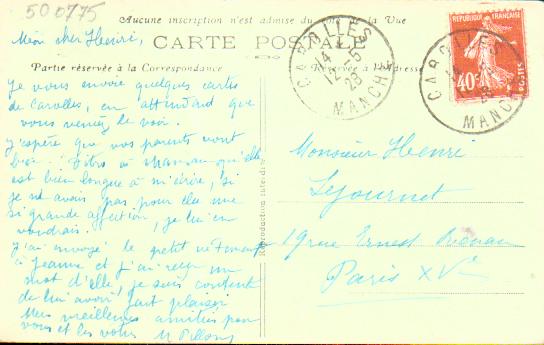 500775
Aucune inscription n'est admise du côté de la Vue
Mon cher Henri,
CARTE POSTALE
Partie réservée à la Correspondance
Réservée à l'Adresse
Je vous envoie quelques cartes
de Carolles, en attendant que
vous veniez le voir.
J'espère que vos parents vont
bien. Dites à Maman qu'elle
est bien longue à m'écrire, si
je ne avais pas pour elle une
si grande affection, je lui en
voudrais.
J'ai envoyé le petit
à Jeanne et j'ai reçu un
mot d'elle, je suis content
de lui avoir fait plaisir
Mes meilleures amitiés pour
vous et les vôtres
Reproduction interdite
CAROLLES
14
12-5
28
MANCHE
CAROLLES
MANCHE
REPUBLIQUE FRANÇAISE
40c
POSTES
Monsieur Henri
Lejournet
19 rue Ernest Renan
Paris XVe